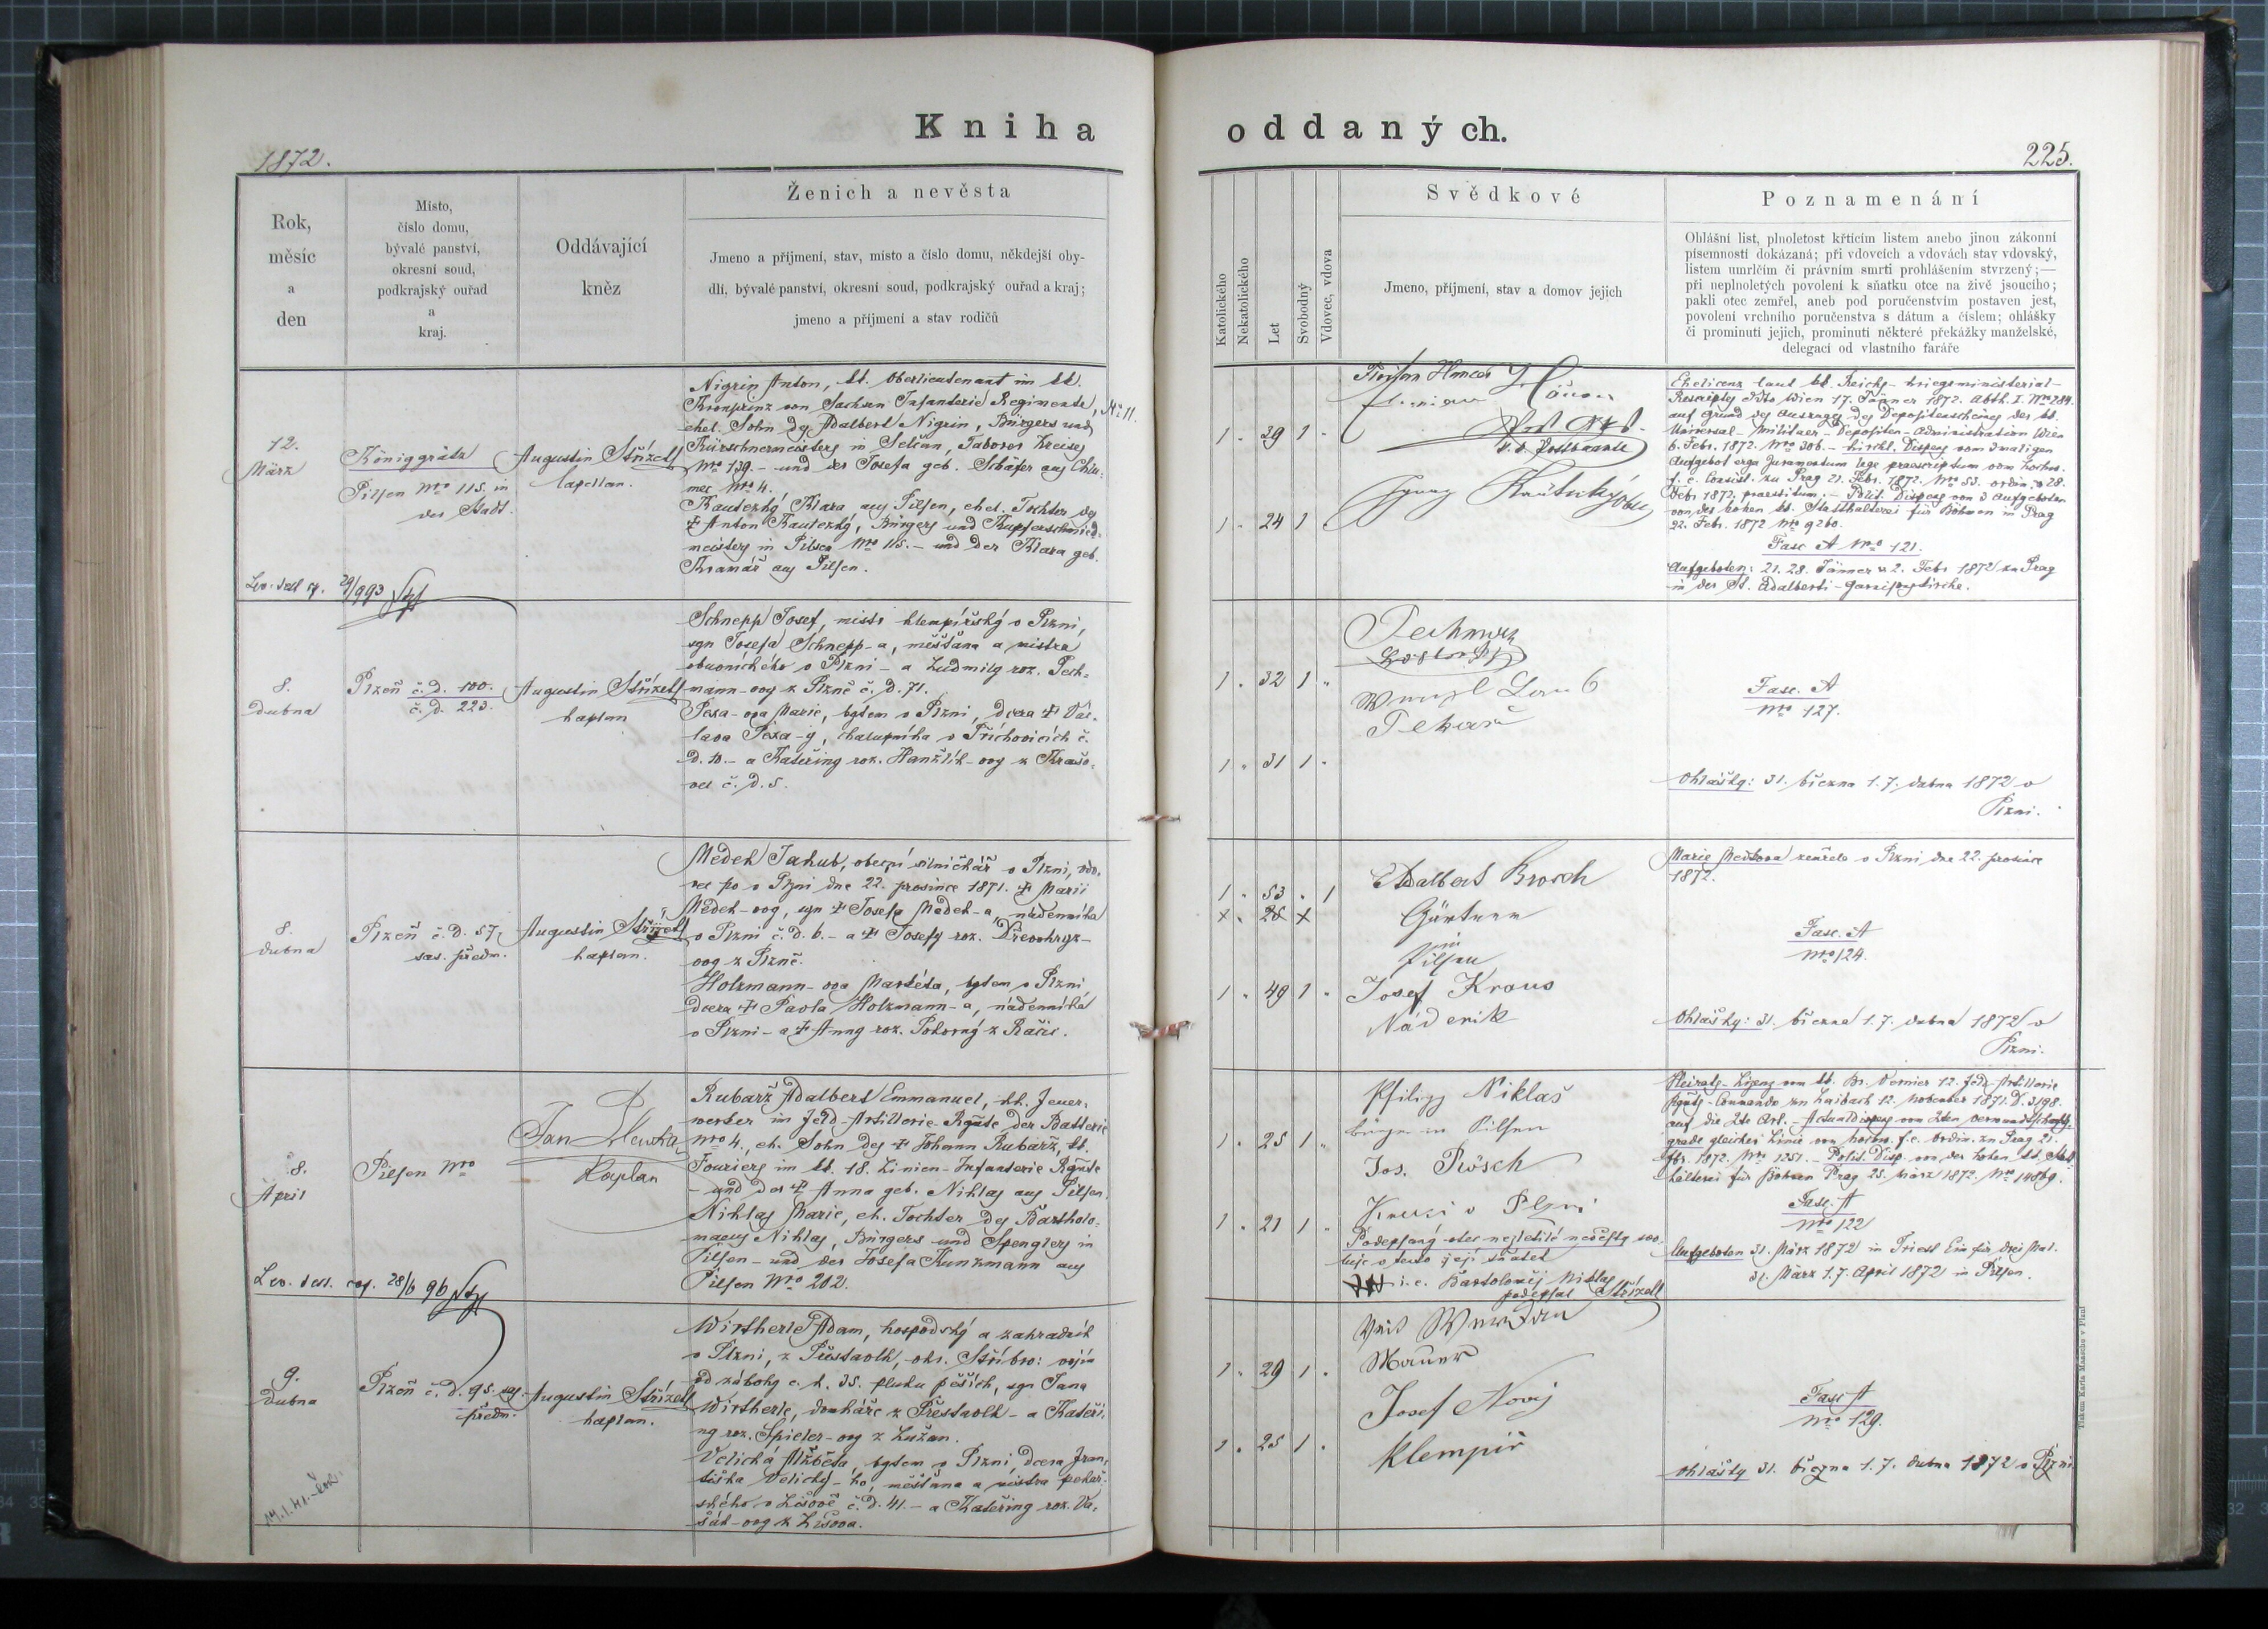 Kniha oddaných.
1872.
225.
Rok,
měsíc
a
den
Místo,
číslo domu,
bývalé panství,
okresní soud,
podkrajský ouřad
a
kraj.
Oddávající
kněz
Ženich a nevěsta
Jmeno a příjmení, stav, místo a číslo domu, někdejší oby-
dlí, bývalé panství, okresní soud, podkrajský ouřad a kraj;
jmeno a příjmení a stav rodičů
Katolického
Nekatolického
Let
Svobodný
Vdovec, vdova
Svědkové
Jmeno, příjmení, stav a domov jejich
Poznamenání
Ohlášní list, plnoletost křticím listem anebo jinou zákonní
písemností dokázaná; při vdovcích a vdovách stav vdovský,
listem umrlčím či právním smrti prohlášením stvrzený;—
při neplnoletých povolení k sňatku otce na živě jsoucího;
pakli otec zemřel, aneb pod poručenstvím postaven jest,
povolení vrchního poručenstva s dátum a číslem; ohlášky
či prominutí jejich, prominutí některé překážky manželské,
delegací od vlastního faráře
12.
März
Königgrätz
Pilsen Nro 115. in
der Stadt.
Augustin Střízek
Capellan.
Nigrin Anton, kk. Oberlieutenant im kk.
Kronprinz von Sachsen Infanterie Regimente, No 11.
ehel. Sohn des Adalbert Nigrin, Bürgers und
Kürschnermeisters in Selčan, Taborer Kreises
Nro 139. – und der Josefa geb. Schäfer aus Chlu-
mec Nro 4.
Kautezký Klara aus Pilsen, ehel. Tochter des
† Anton Kautezký, Bürgers und Kupferschmied-
meisters in Pilsen Nro 115. – und der Klara geb.
Kramář aus Pilsen.
29/9 93
1 39 1
1 24 1
Ehelicenz laut kk. Reichs-Kriegsministerial-
Rescripts ddto Wien 17. Jänner 1872. Abth. I. Nro 284.
auf Grund des Auszuges des Depositenscheines der kk.
Universal-Militaer-Depositen-Administration Wien
6. Febr. 1872. Nro 306. – Kirchl. Dispens vom 3maligen
Aufgebot erga Juramentum lege praescriptum vom hochw.
f. e. Consist. zu Prag 21. Febr. 1872. Nro 53. ordin. 28.
Febr 1872. praestitum. – Polit. Dispens von 3 Aufgeboten
von der hohen kk. Statthalterei für Böhmen in Prag
22. Febr. 1872 Nro 9260.
Fasc A Nro 121.
Aufgeboten: 21. 28. Jänner u 2. Febr 1872 zu Prag
in der St. Adalberti-Garnisonskirche.
8.
dubna
Plzeň č. d. 100.
č. d. 223.
Augustin Střízek
kaplan
Schnepp Josef, mistr klempířský v Plzni,
syn Josefa Schnepp-a, měšťana a mistra
obuvnického v Plzni – a Ludmily roz. Pech-
mann-ovy z Plzně č. d. 71.
Pexa-ova Marie, bytem v Plzni, dcera † Vác-
lava Pexa-y, chalupníka v Příchovicích č.
d. 10. – a Kateřiny roz. Hanzlík-ovy z Krašo-
vec č. d. 5.
1 32 1
1 31 1
Pekař
Fasc. A
Nro 127.
Ohlášky: 31. března 1. 7. dubna 1872 v
Plzni.
8.
dubna
Plzeň č. d. 57,
sas. předm.
Augustin Střízek
kaplan.
Medek Jakub, obecní silničkář v Plzni, vdo-
vec po v Plzni dne 22. prosince 1871. † Marii
Medek-ovy, syn † Josefa Medek-a, nádenníka
v Plzni č. d. 6. – a † Josefy roz. Dřevohryz-
ovy z Plzně.
Holzmann-ova Markéta, bytem v Plzni,
dcera † Pavla Holzmann-a, nádenníka
v Plzni – a † Anny roz. Pokorný z Račic.
1 53 1
x 28 x
1 49 1
Adalbert Brosch
Gärtner
in
Pilsen
Josef Kraus
Nádenik
Marie Medkova zemřela v Plzni dne 22. prosince
1872.
Fasc. A
Nro 124.
Ohlášky: 31. března 1. 7. dubna 1872 v
Plzni.
8.
April
Pilsen Nro
Jan
Kaplan
Rubarž Adalbert Emmanuel, kk. Feuer-
werker im Feld-Artillerie-Rgmte der Batterie
Nro 4., eh. Sohn des † Johann Rubarž, kk.
Fouriers im kk. 18. Linien-Infanterie Rgmte
– und der † Anna geb. Niklas aus Pilsen.
Niklas Marie, eh. Tochter des Bartholo-
maeus Niklas, Bürgers und Spenglers in
Pilsen – und der Josefa Kunzmann aus
Pilsen Nro 202.
28/6 96
1 25 1
1 21 1
Philipp Niklaš
Bürger in Pilsen
Jos. Prösch
v Plzni
Podepsaný otec nezletilé nevěsty svo-
luje v tento její sňatek
i. e. Bartoloměj Niklas
podepsal Střízek
Heirats-Lizenz vom kk. Br. Vernier 12. Feld-Artillerie
Rgmts-Commando zu Laibach 12. November 1871. D. 3198.
auf die 2te Art. – vom 2ten Verwandtschafts-
grade gleicher Linie vom hochw. f. e. Ordin. zu Prag 21.
Febr. 1872. Nro 1251. – Polit. Disp. von der hohen kk. Statt-
halterei für Böhmen Prag 25. März 1872. Nro 14869.
Fasc. A
Nro 122
Aufgeboten 31. März 1872 in Triest Ein für drei Mal.
31. März 1. 7. April 1872 in Pilsen.
9.
dubna
Plzeň č. d. 95. sas.
předm.
Augustin Střízek
kaplan.
Wirtherle Adam, hospodský a zahradník
v Plzni, z Přestavlk, okr. Stříbro: vojín
od zálohy c. k. 35. pluku pěších, syn Jana
Wirtherle, domkáře z Přestavlk – a Kateři-
ny roz. Spieler-ovy z Lužan.
Velická Alžběta, bytem v Plzni, dcera Fran-
tiška Velický-ho, měšťana a mistra pekař-
ského v Líšově č. d. 41. – a Kateřiny roz. Va-
šák-ovy z Líšova.
1 29 1
1 25 1
Mauer
Josef Nový
Klempíř
Fasc A
Nro 129.
Ohlášky 31. března 1. 7. dubna 1872 v Plzni
Tiskem Karla Maasche v Plzni